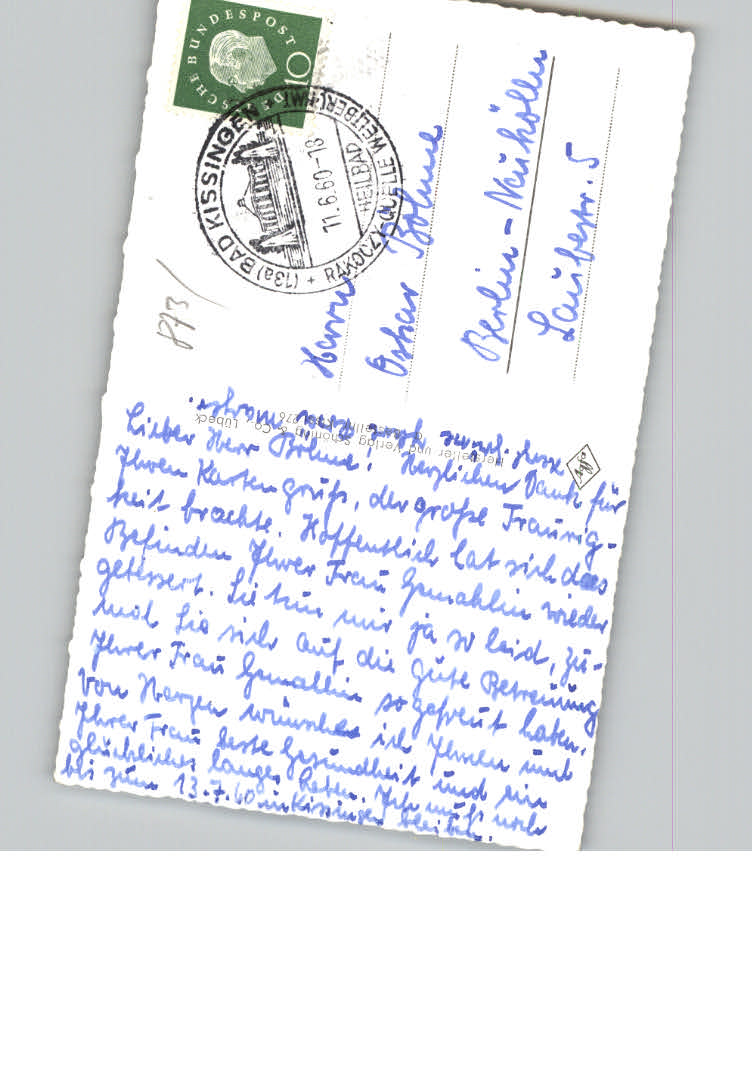 DEUTSCHE BUNDESPOST
10
(13a) BAD KISSINGEN
HEILBAD
RAKOCZY-QUELLE WELTBERÜHMT
11.6.60-18
873
Herrn
Oskar Böhme
Berlin-Neukölln
Laubestr. 5
Hersteller und Verlag Schöning & Co., Lübeck
Lieber Herr Böhme! Herzlichen Dank für
Ihren Kartengruß, der große Traurig-
keit brachte. Hoffentlich hat sich das
Befinden Ihrer Frau Gemahlin wieder
gebessert. Sie tun mir ja so leid, zu-
mal Sie sich auf die gute Betreuung
Ihrer Frau Gemahlin so gefreut haben.
Von Herzen wünsche ich Ihnen und
Ihrer Frau beste Gesundheit und ein
glückliches langes Leben. Ich muß noch
bis zum 13.7.60 in Kissingen bleiben.